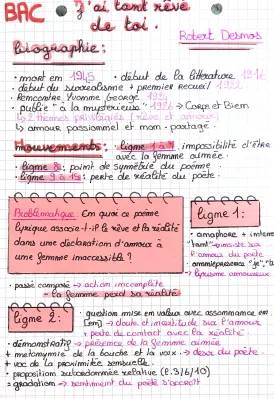 BAC J'ai tant rêvé
de toi.
Robert Desnos
biographie:
• mort en 1945 • début de la littérature
• début du surréalisme + premier recueil
• Rencontre Yvonne George
• publie "à la mystérieuse" → Corps et Biens
↳ 2 thèmes privilégiés (rêve et amour)
↳ amour passionnel et non partagé.
Mouvements: ligne 1 à 7: impossibilité d'être
avec la femme aimée.
• ligne 8: point de symétrie du poème.
• ligne 9 à 13: perte de réalité du poète
Problématique En quoi ce poème
lyrique associe-t-il le rêve et la réalité
dans une déclaration d'amour à
une femme inaccessible?
ligne 1:
• anaphore +
"tant" → insiste sur
l'amour du poète
• omniprésence "je",
lyrisme amoureux
• passé composé → action incomplète
→ la femme perd sa réalité
ligne 2:
• question mise en valeur avec assonnance en
[en] → doute et incertitude sur l'amour
→ perte de contact avec la réalité.
• démonstratif → présence de la femme aimée
+ métonymie de la bouche et la voix → désir du poète.
+ voc de la proximité sensuelle
• proposition subordonnée relative (l.3/6/10)
= gradation → sentiment du poète s'accroît